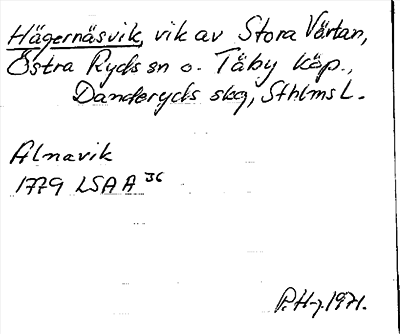 Hägernäsvik, vik av Stora Värtan,
Östra Ryds sn o. Täby köp.,
Danderyds skg, Sthlms L.
Alnavik
1779 LSA A 36
P.H-g. 1971.